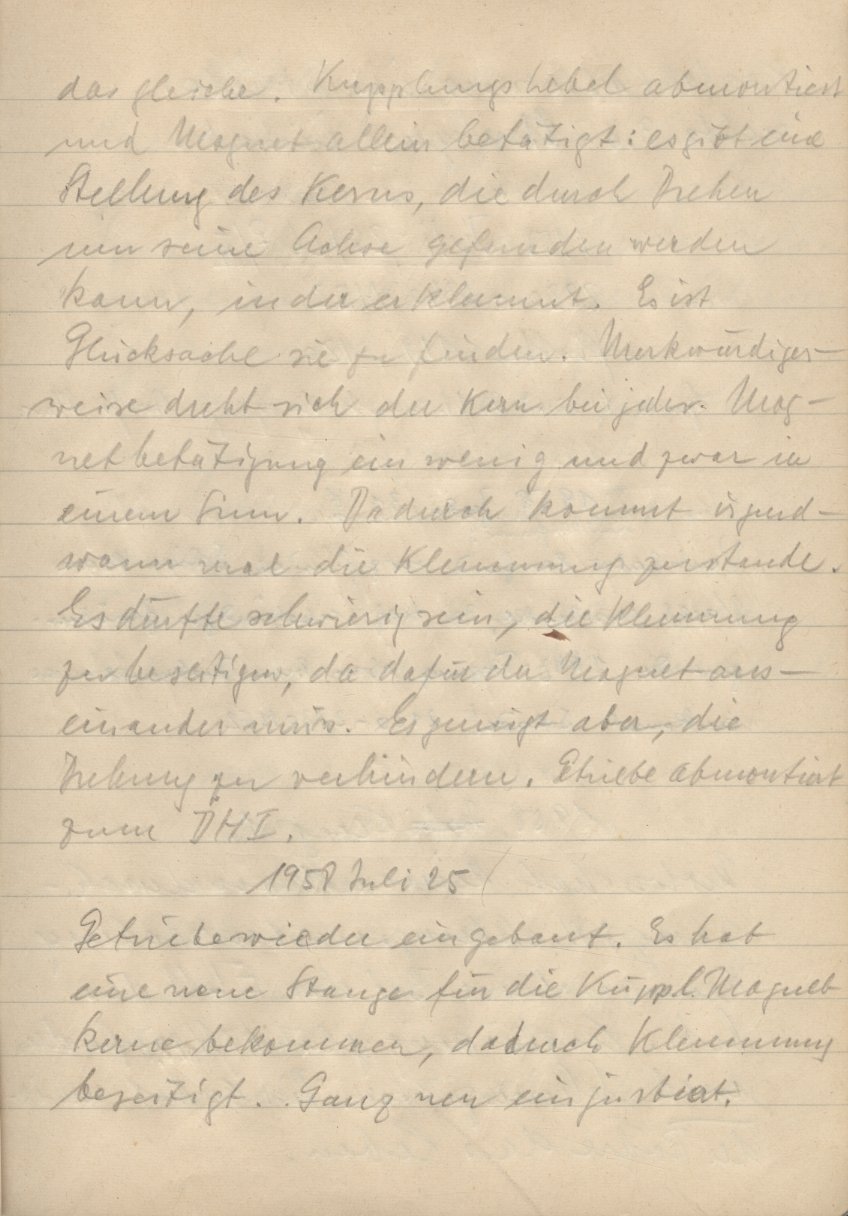 das gleiche. Kupplungshebel abmontiert
und Magnet allein betätigt: es gibt eine
Stellung des Kerns, die durch Drehen
um seine Achse gefunden werden
kann, in der er klemmt. Es ist
Glücksache sie zu finden. Merkwürdiger-
weise dreht sich der Kern bei jeder Mag-
netbetätigung ein wenig und zwar in
einem Sinn. Dadurch kommt irgend-
wann mal die Klemmung zustande.
Es dürfte schwierig sein, die Klemmung
zu beseitigen, da dafür der Magnet aus-
einander muss. Es genügt aber, die
Drehung zu verhindern. Getriebe abmontiert
zum DHI.
1958 Juli 25
Getriebe wieder eingebaut. Es hat
eine neue Stange für die Kuppl. Magnet
kerne bekommen, dadurch Klemmung
beseitigt. Ganz neu einjustiert.